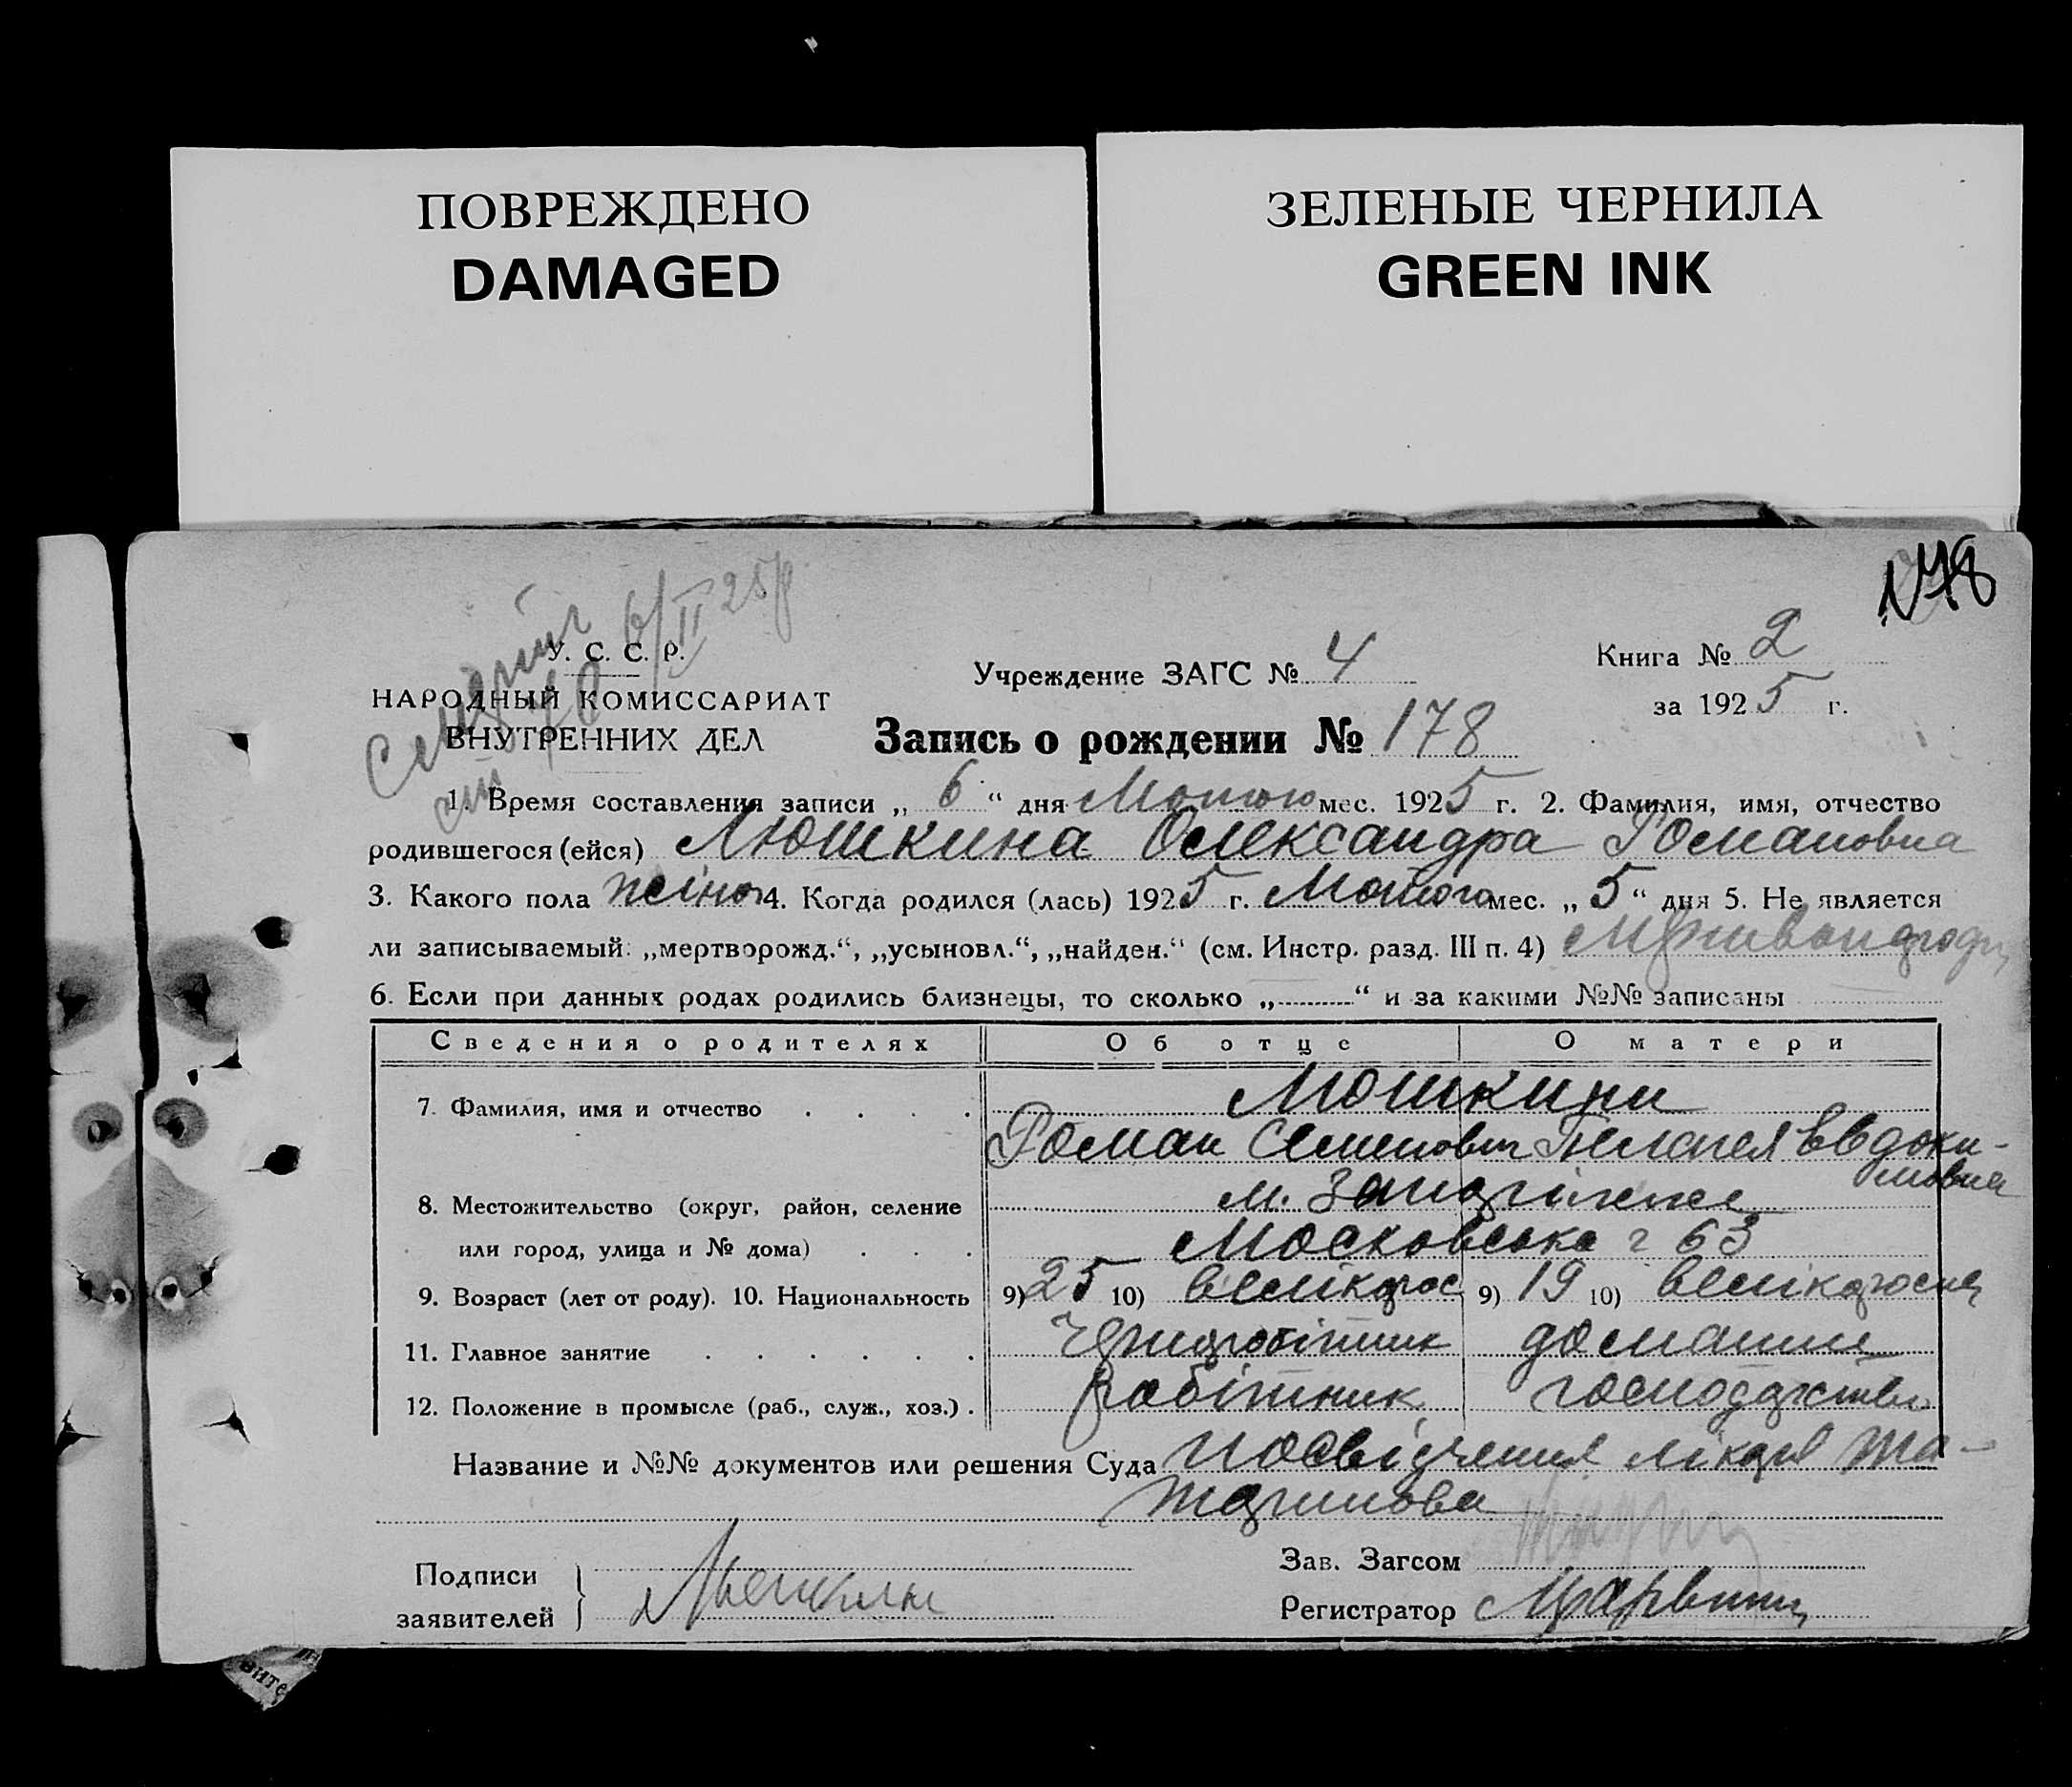 ПОВРЕЖДЕНО
DAMAGED
ЗЕЛЕНЫЕ ЧЕРНИЛА
GREEN INK
6/II 25р
У. С. С. Р.
НАРОДНЫЙ КОМИССАРИАТ
ВНУТРЕННИХ ДЕЛ
Учреждение ЗАГС № 4
Книга № 2
за 1925 г.
Запись о рождении № 178
1. Время составления записи „ 6 “ дня Лютого мес. 1925 г. 2. Фамилия, имя, отчество
родившегося (ейся) Люшкина Олександра Романовна
3. Какого пола жіноч 4. Когда родился (лась) 1925 г. Лютого мес. „ 5 “ дня 5. Не является
ли записываемый: „мертворожд.“, „усыновл.“, „найден.“ (см. Инстр. разд. III п. 4)
6. Если при данных родах родились близнецы, то сколько „ “ и за какими №№ записаны
Сведения о родителях Об отце О матери
7. Фамилия, имя и отчество Люшкини
Роман Семенович Пелагея Євдоки-
мовна
8. Местожительство (округ, район, селение м. Запоріжже
или город, улица и № дома) Московська 63
9. Возраст (лет от роду). 10. Национальность 9) 25 10) великорос 9) 19 10) великороск
11. Главное занятие Чорноробітник домашне
12. Положение в промысле (раб., служ., хоз.) робітник господарство
Название и №№ документов или решения Суда посвідчення лікаря
Подписи
заявителей
Зав. Загсом
Регистратор